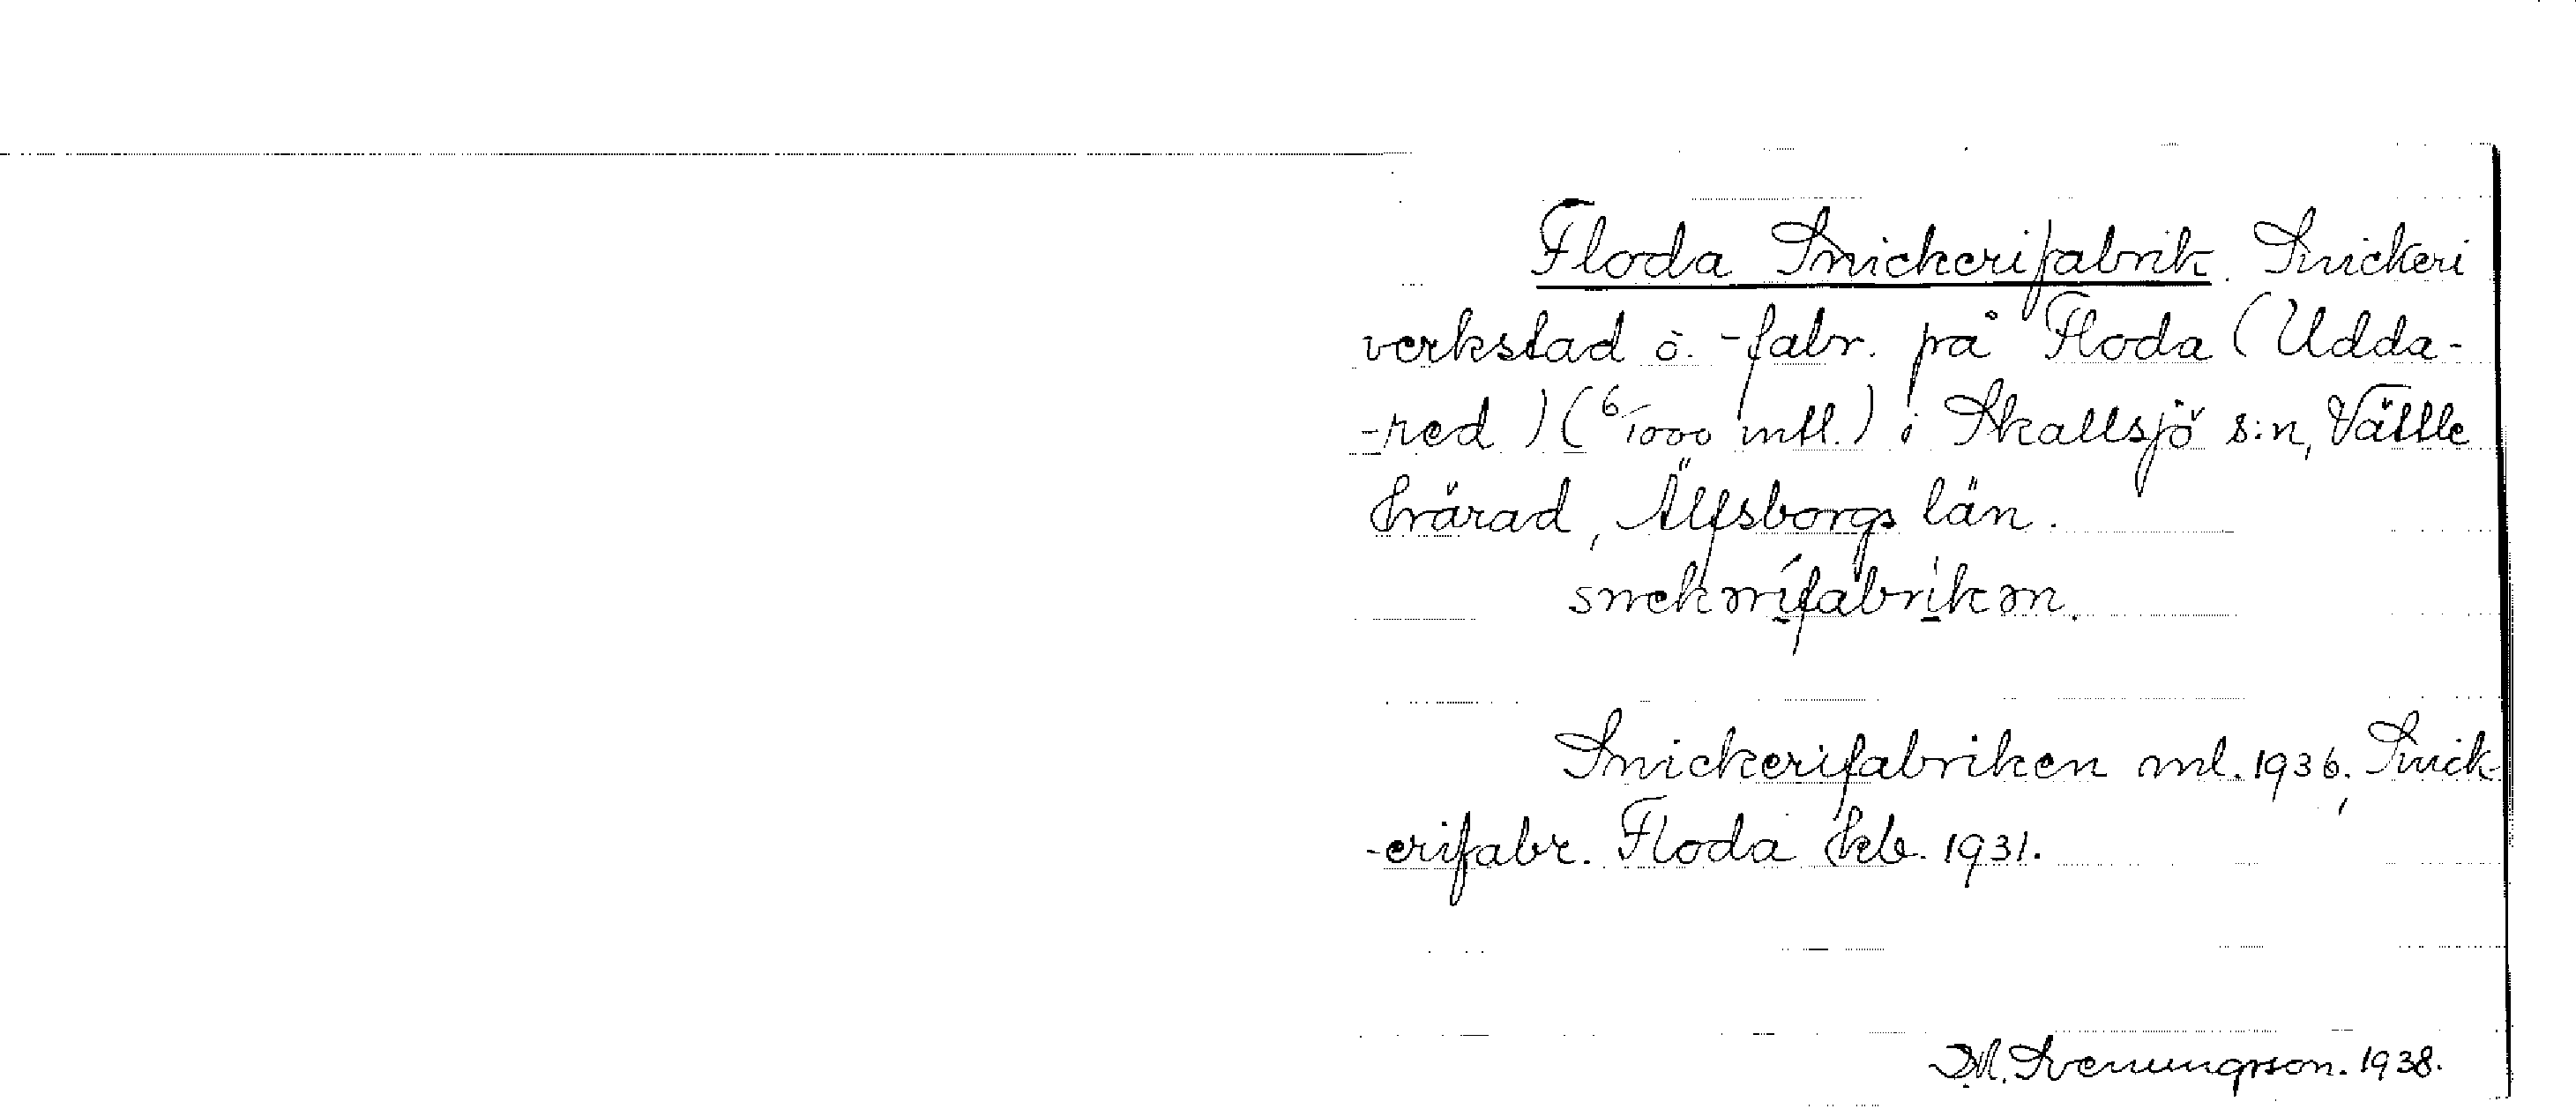 Floda Snickerifabrik. Snickeri
verkstad o. -fabr. på Floda (Udda-
-red) (6/1000 mtl.) i Skallsjö s:n, Vättle
härad, Älfsborgs län.
Snickerifabriken ml. 1936, Snick-
-erifabr. Floda hkb. 1931.
Svenungsson. 1938.